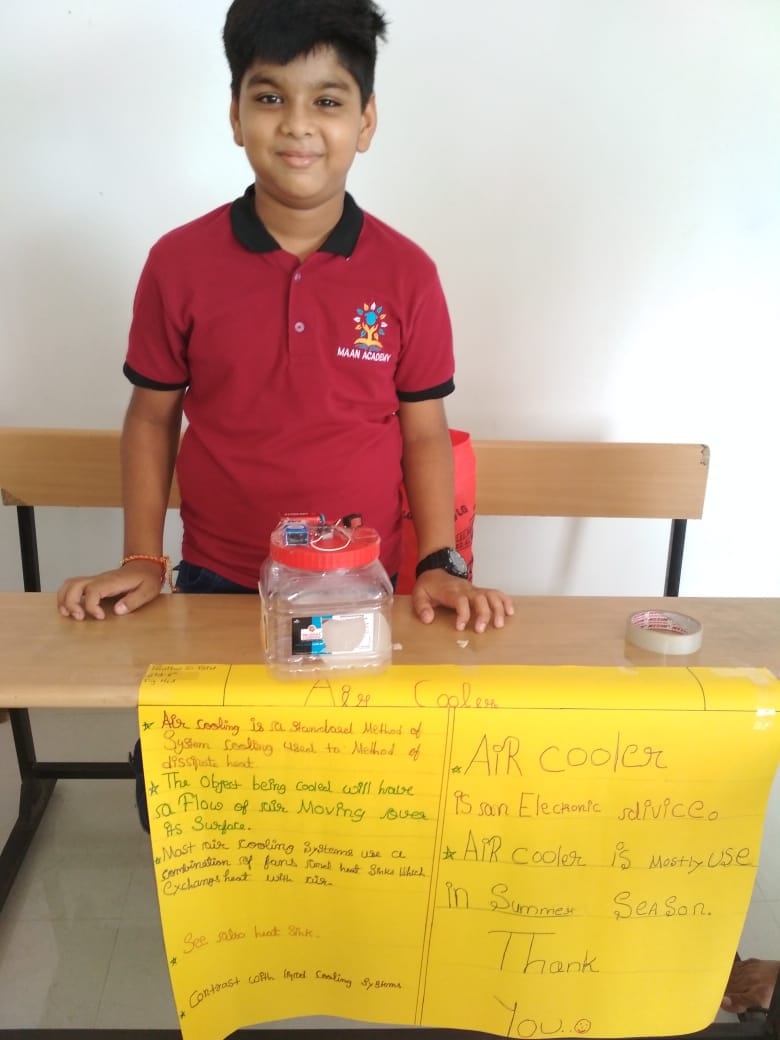 MAAN ACADEMY
Air Cooler
★ Air cooling is a standard Method of
System cooling used to Method of
dissipate heat.
★ The Object being cooled will have
a Flow of air Moving over
its Surface.
★ Most air cooling systems use a
combination of fans and heat sinks which
Exchange heat with air.
★ See also heat sink.
★ Contrast with liquid cooling systems
★ AIR cooler
is an Electronic divice.
★ AIR cooler is Mostly USE
in Summer SEASON.
Thank
You..☺